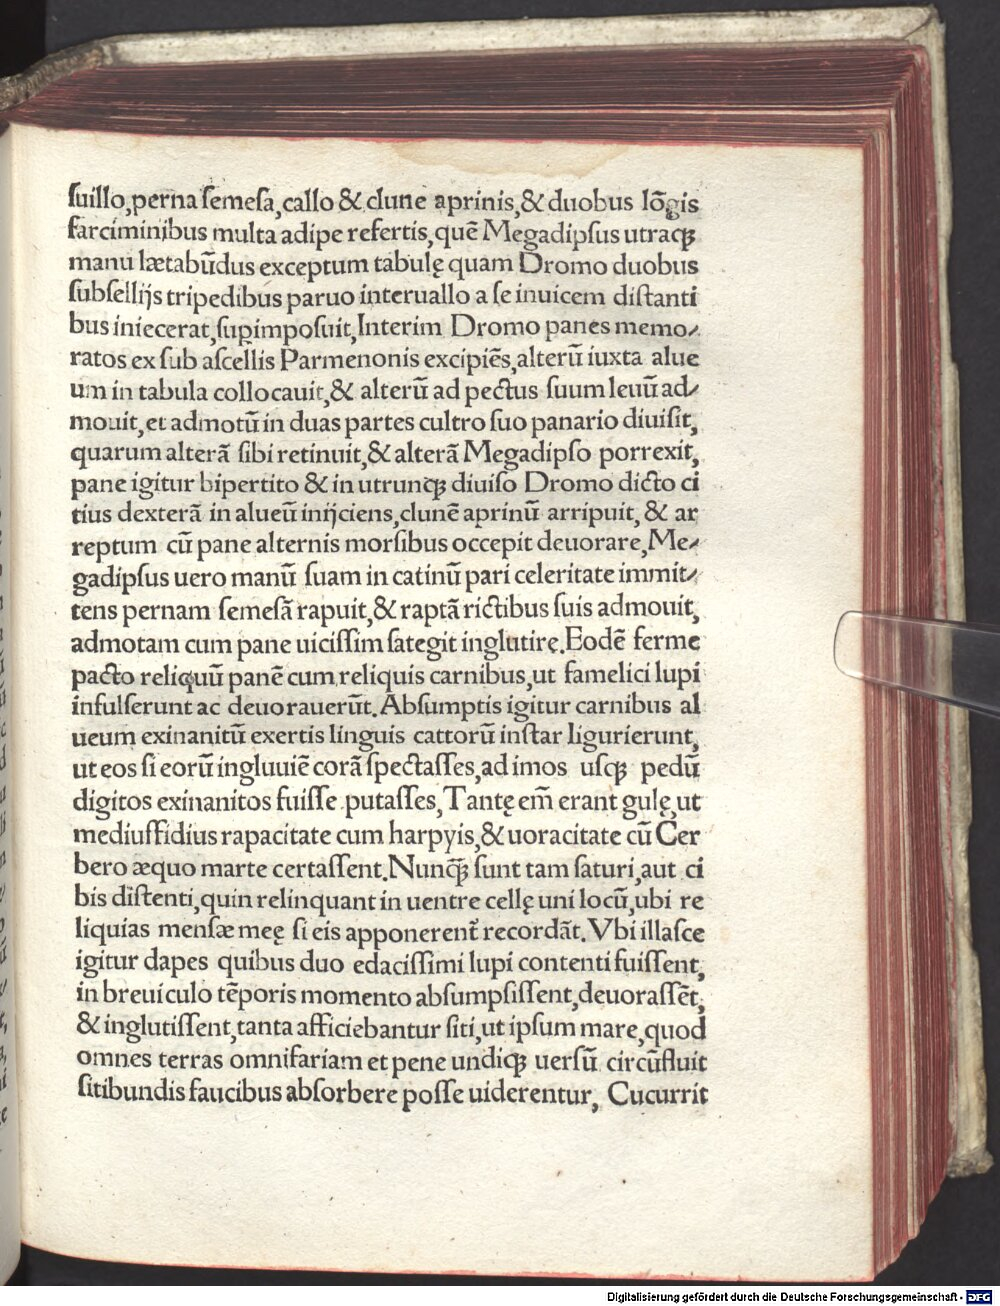 ſuillo,perna ſemeſa,callo & clune aprinis,& duobus lõgis
farciminibus multa adipe refertis,quẽ Megadipſus utracꝫ
manu lætabũdus exceptum tabulę quam Dromo duobus
ſubſellijs tripedibus paruo interuallo a ſe inuicem diſtanti
bus iniecerat,ſuꝑimpoſuit,Interim Dromo panes memo⸗
ratos ex ſub aſcellis Parmenonis excipiẽs,alterũ iuxta alue
um in tabula collocauit,& alterũ ad pectus ſuum leuũ ad⸗
mouit,et admotũ in duas partes cultro ſuo panario diuiſit,
quarum alterã ſibi retinuit,& alterã Megadipſo porrexit,
pane igitur bipertito & in utruncꝫ diuiſo Dromo dicto ci
tius dexterã in alueũ inijciens,clunẽ aprinũ arripuit, & ar
reptum cũ pane alternis morſibus occepit deuorare,Me⸗
gadipſus uero manũ ſuam in catinũ pari celeritate immit⸗
tens pernam ſemeſã rapuit,& raptã rictibus ſuis admouit,
admotam cum pane uiciſſim ſategit inglutire.Eodẽ ferme
pacto reliquũ panẽ cum reliquis carnibus,ut famelici lupi
infulſerunt ac deuorauerũt.Abſumptis igitur carnibus al
ueum exinanitũ exertis linguis cattorũ inſtar ligurierunt,
ut eos ſi eorũ ingluuiẽ corã ſpectaſſes,ad imos uſcꝫ pedũ
digitos exinanitos fuiſſe putaſſes,Tantę em̃ erant gulę,ut
mediuſfidius rapacitate cum harpyis,& uoracitate cũ Cer
bero æquo marte certaſſent.Nuncꝫ̃ ſunt tam ſaturi,aut ci
bis diſtenti,quin relinquant in uentre cellę uni locũ,ubi re
liquias menſæ meę ſi eis apponerent᷑ recordãt.Vbi illaſce
igitur dapes quibus duo edaciſſimi lupi contenti fuiſſent,
in breuiculo tẽporis momento abſumpſiſſent,deuoraſſẽt,
& inglutiſſent,tanta afficiebantur ſiti,ut ipſum mare,quod
omnes terras omnifariam et pene undicꝫ uerſũ circũfluit
ſitibundis faucibus abſorbere poſſe uiderentur, Cucurrit
Digitalisierung gefördert durch die Deutsche Forschungsgemeinschaft - DFG